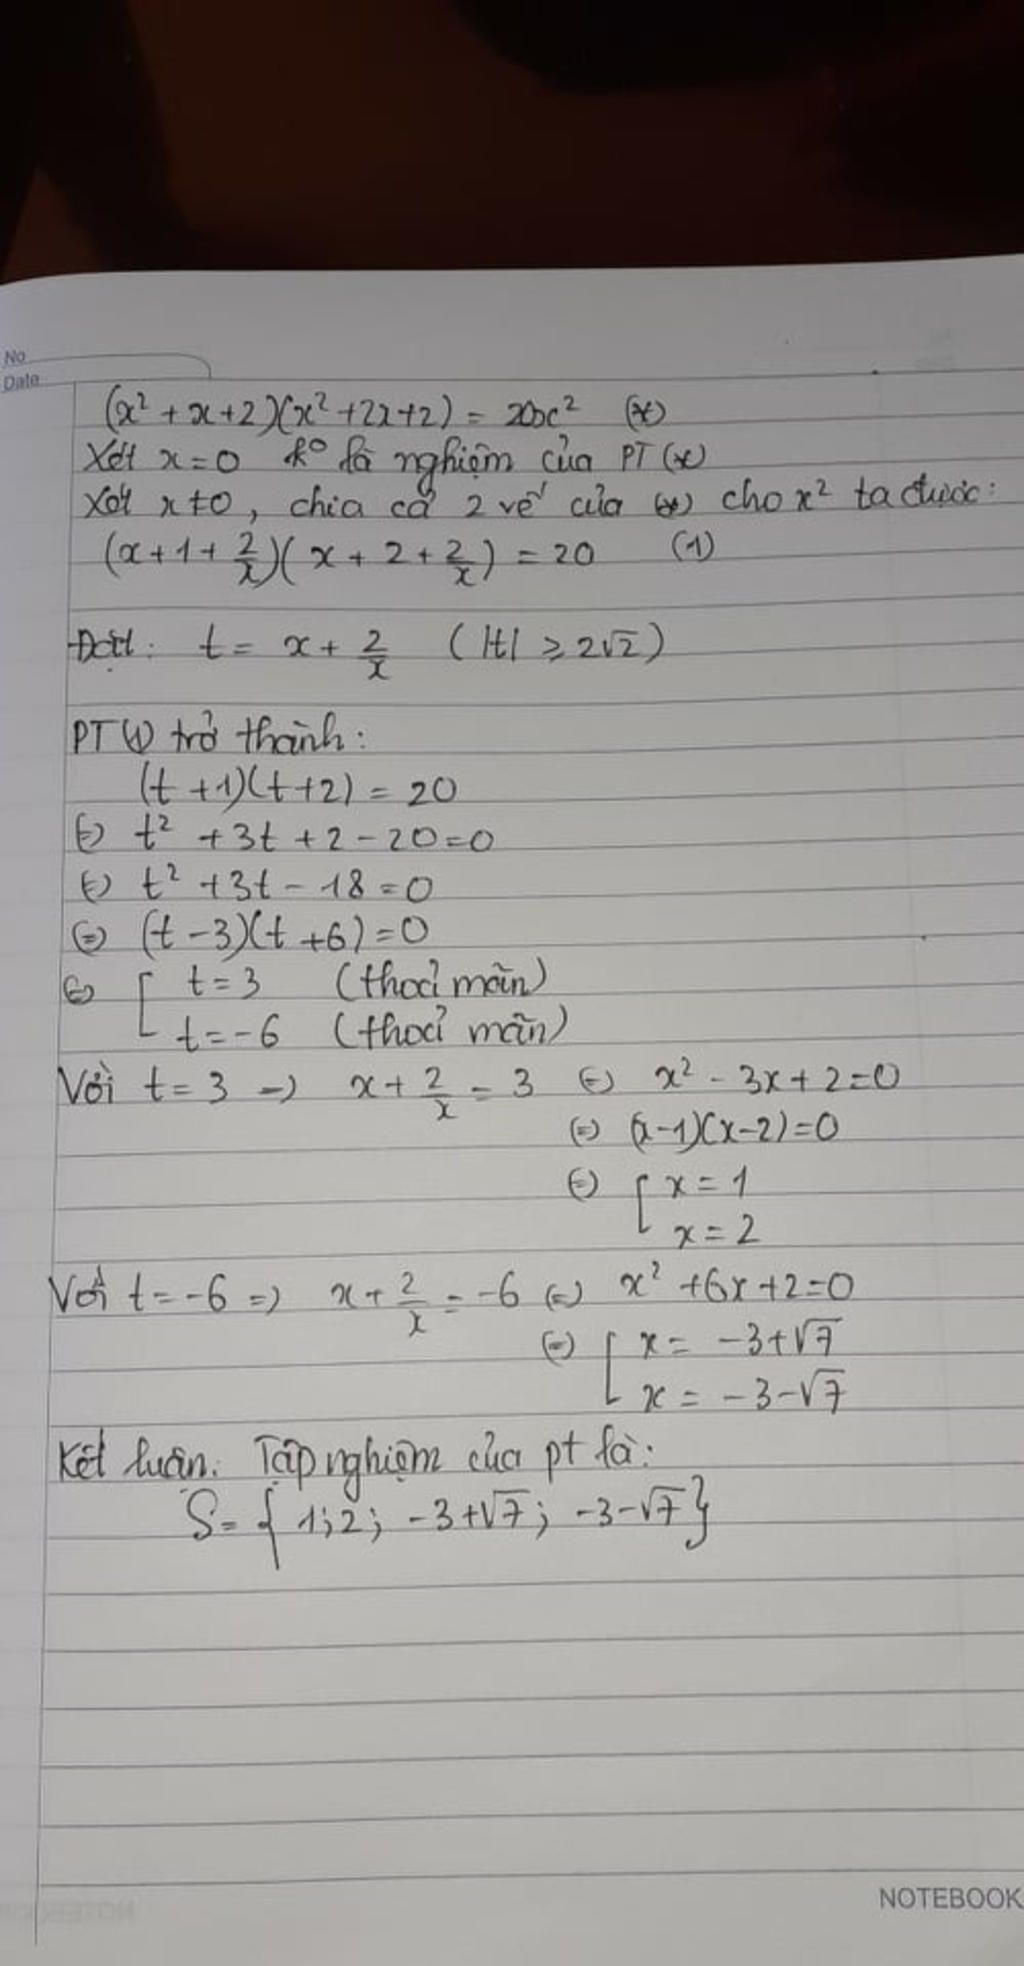 No
Date
(x² + x + 2)(x² + 2x + 2) = 20x² (*)
Xét x = 0 k° là nghiệm của PT (*)
Xét x ≠ 0, chia cả 2 vế của (*) cho x² ta được:
(x + 1 + 2/x)(x + 2 + 2/x) = 20 (1)
Đặt: t = x + 2/x (|t| ≥ 2√2)
PT (1) trở thành:
(t + 1)(t + 2) = 20
(=) t² + 3t + 2 - 20 = 0
(=) t² + 3t - 18 = 0
(=) (t - 3)(t + 6) = 0
(=) [ t = 3 (thoả mãn)
t = -6 (thoả mãn)
Với t = 3 => x + 2/x = 3 (=) x² - 3x + 2 = 0
(=) (x - 1)(x - 2) = 0
(=) [ x = 1
x = 2
Với t = -6 => x + 2/x = -6 (=) x² + 6x + 2 = 0
(=) [ x = -3 + √7
x = -3 - √7
Kết luận. Tập nghiệm của pt là:
S = { 1; 2; -3 + √7; -3 - √7 }
NOTEBOOK